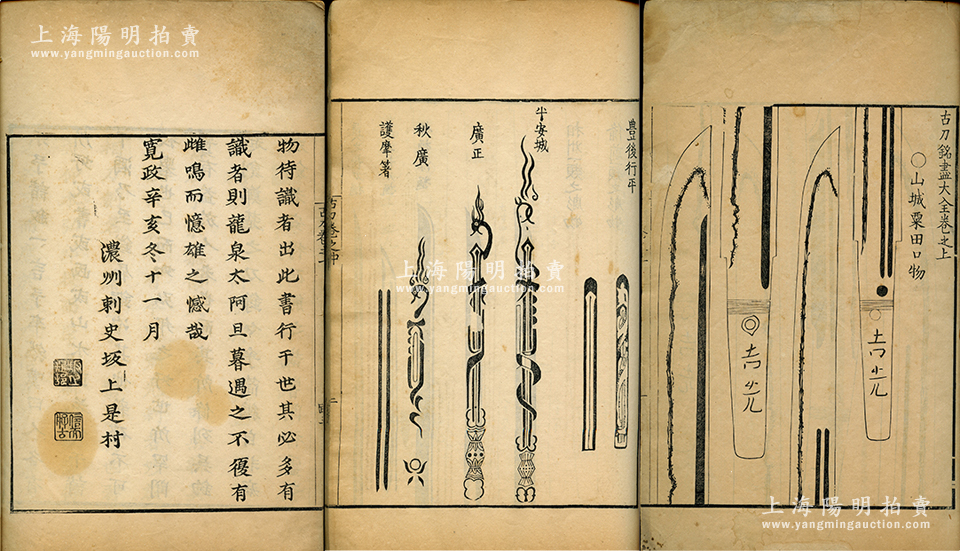 上海陽明拍賣
www.yangmingauction.com
物待識者出此書行于世其必多有
識者則龍泉太阿旦暮遇之不復有
雌鳴而憶雄之憾哉
寛政辛亥冬十一月
濃州刺史坂上是村
豊後行平
平安城
廣正
秋廣
護摩箸
上海陽明拍賣
www.yangmingauction.com
古刀銘盡大全卷之上
○山城粟田口物
吉光
吉光
上海陽明拍賣
www.yangmingauction.com